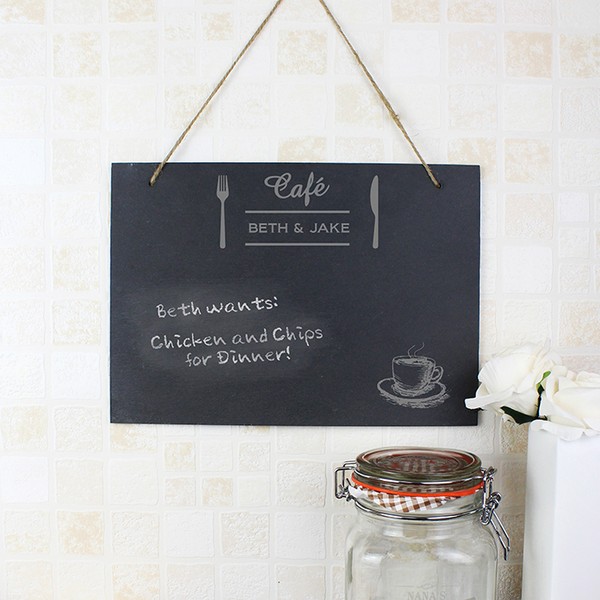 Café
BETH & JAKE
Beth wants:
Chicken and Chips
for Dinner!
NANA'S